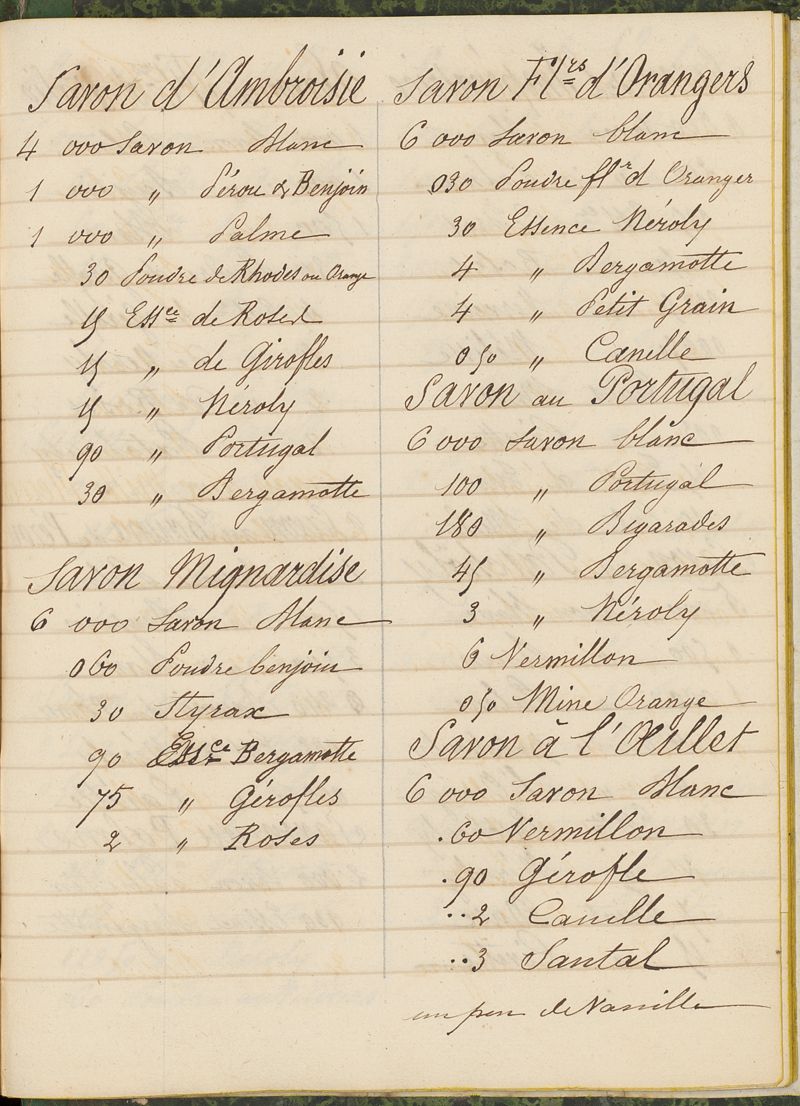 Savon d'Ambroisie
4 000 Savon blanc
1 000 „ Pérou & Benjoin
1 000 „ Palme
30 Poudre de Rhodes ou Orange
15 Essce de Roses
15 „ de Girofles
15 „ Néroly
90 „ Portugal
30 „ Bergamotte
Savon Mignardise
6 000 Savon blanc
060 Poudre benjoin
30 Styrax
90 Essce Bergamotte
75 „ Gérofles
2 „ Roses
Savon Flrs d'Orangers
6 000 Savon blanc
030 Poudre flr d Oranger
30 Essence Néroly
4 „ Bergamotte
4 „ Petit Grain
050 „ Canelle
Savon au Portugal
6 000 Savon blanc
100 „ Portugal
180 „ Bigarades
45 „ Bergamotte
3 „ Néroly
6 Vermillon
050 Mine Orange
Savon à l'Œillet
6 000 Savon blanc
.60 Vermillon
.90 Gérofle
..2 Canelle
..3 Santal
un peu de Vanille